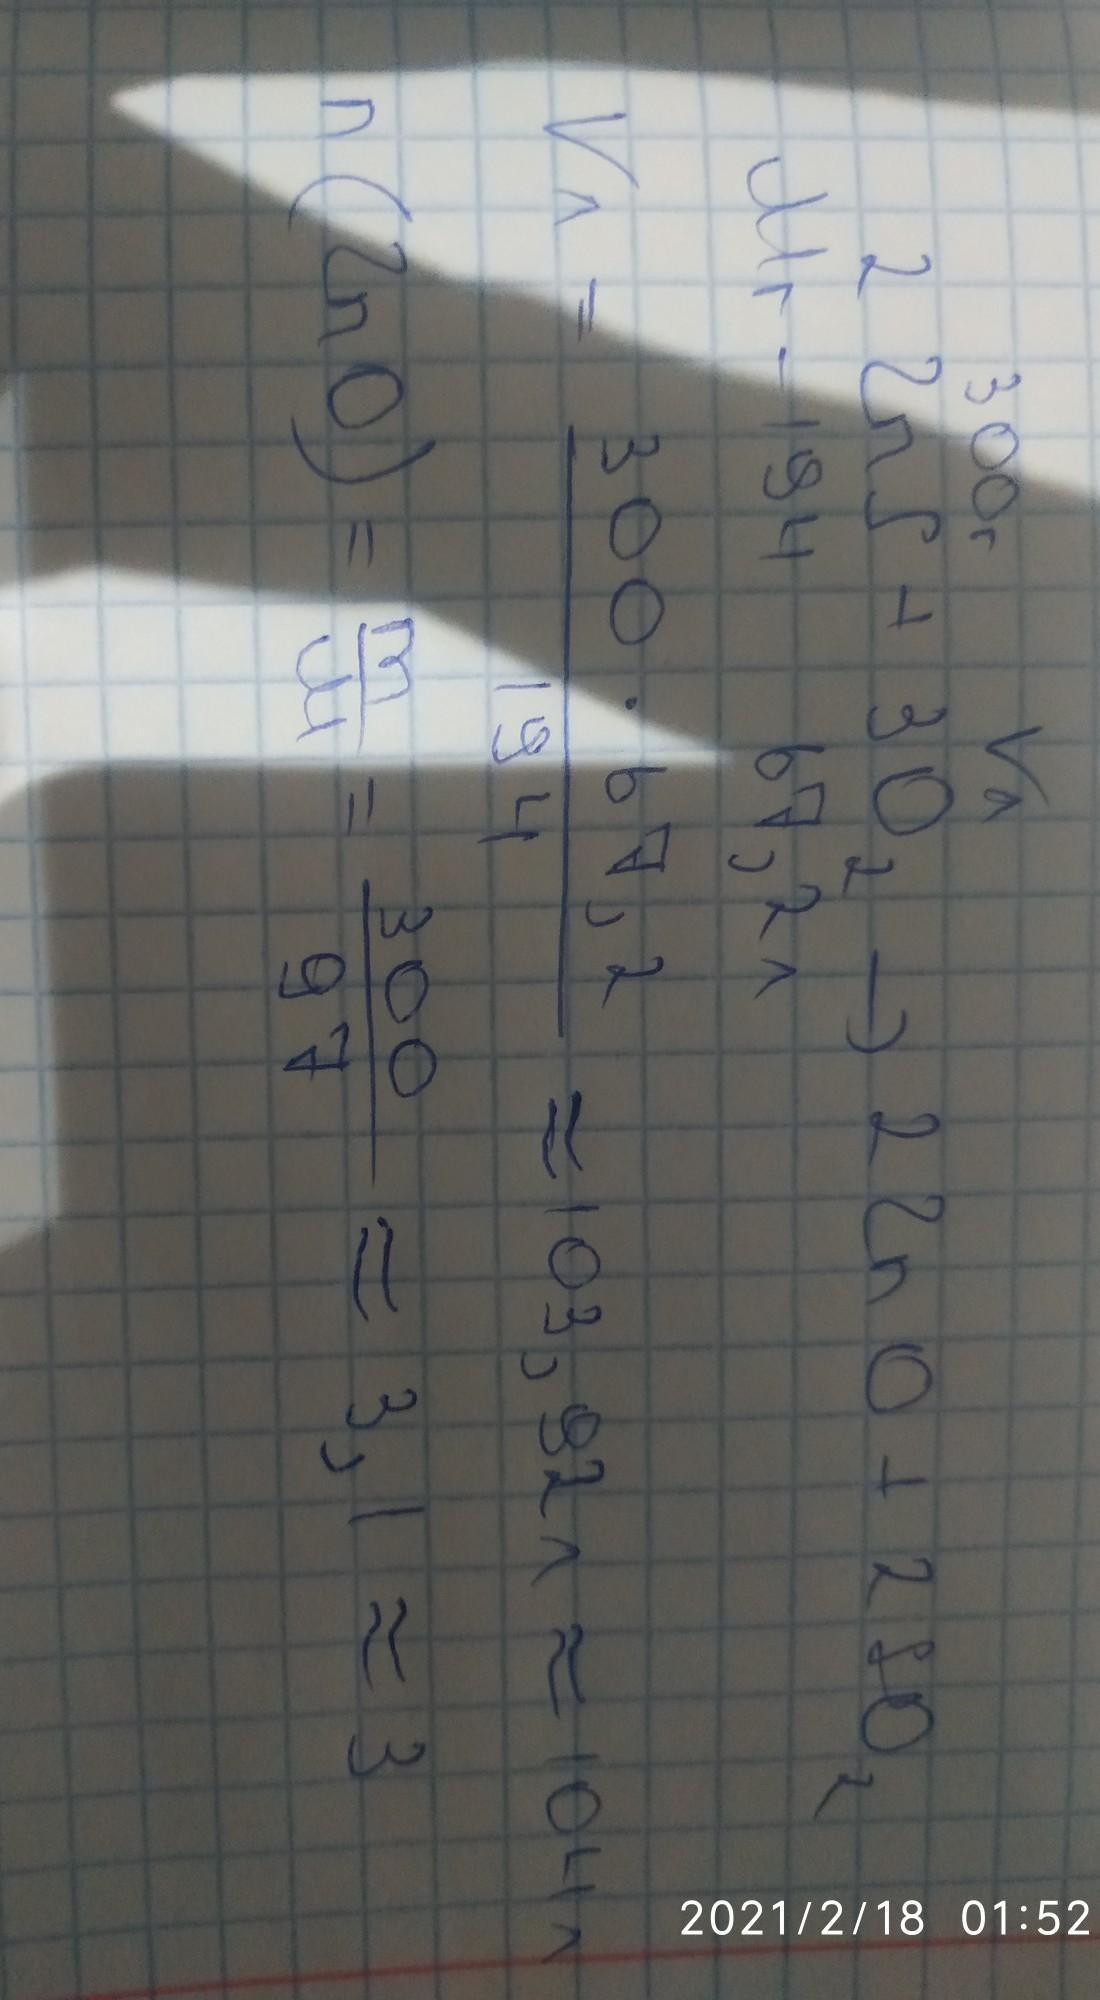 300г Vл
2ZnS + 3O₂ → 2ZnO + 2SO₂
Mr - 194 67,2л
Vл = 300 · 67,2 / 194 ≈ 103,92л ≈ 104л
n(ZnO) = m/M = 300/97 = 3,1 ≈ 3
2021/2/18 01:52